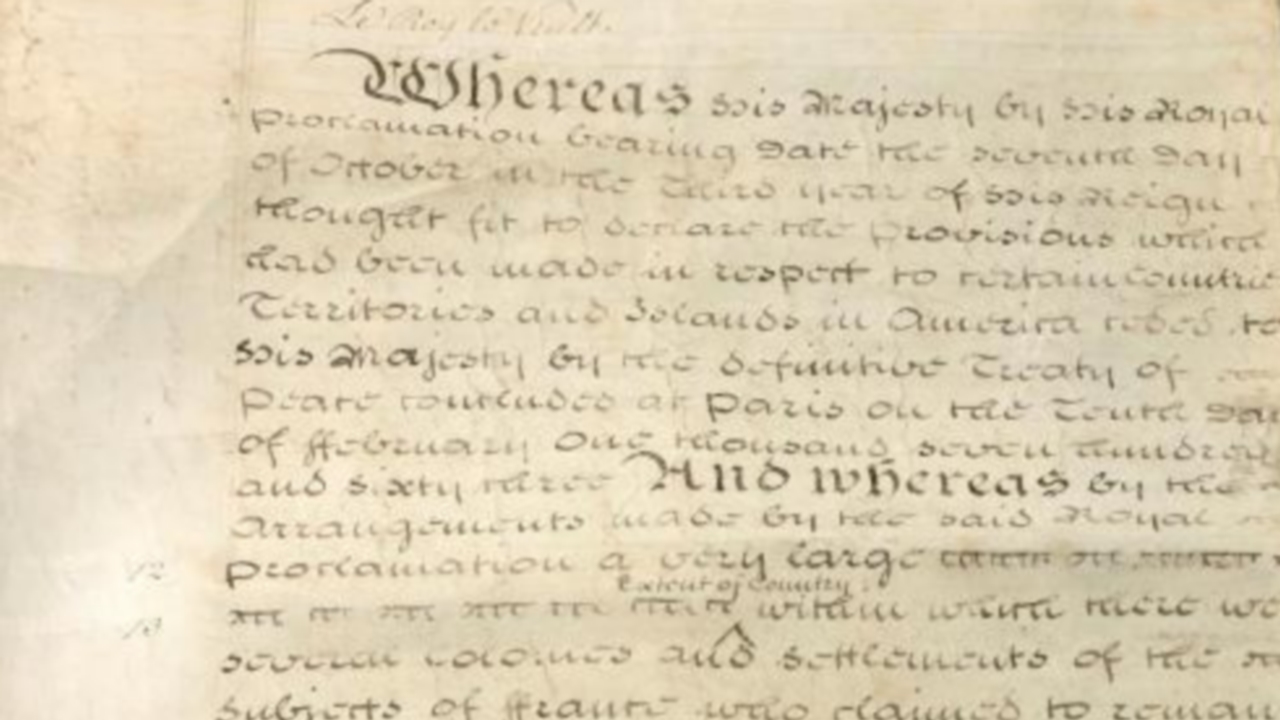 Le Roy le Veult.
Whereas His Majesty by His Royal
Proclamation bearing Date the seventh Day
of October in the Third year of His Reign
thought fit to declare the Provisions which
had been made in respect to certain Countrie
Territories and Islands in America ceded to
His Majesty by the definitive Treaty of
Peace concluded at Paris on the Tenth Da
of ffebruary One thousand seven hundred
and sixty three And whereas by the
Arrangements made by the said Royal
12 Proclamation a very large
Extent of Country
13 within which there we
several colonies and settlements of the
subjects of ffrance who claimed to remain